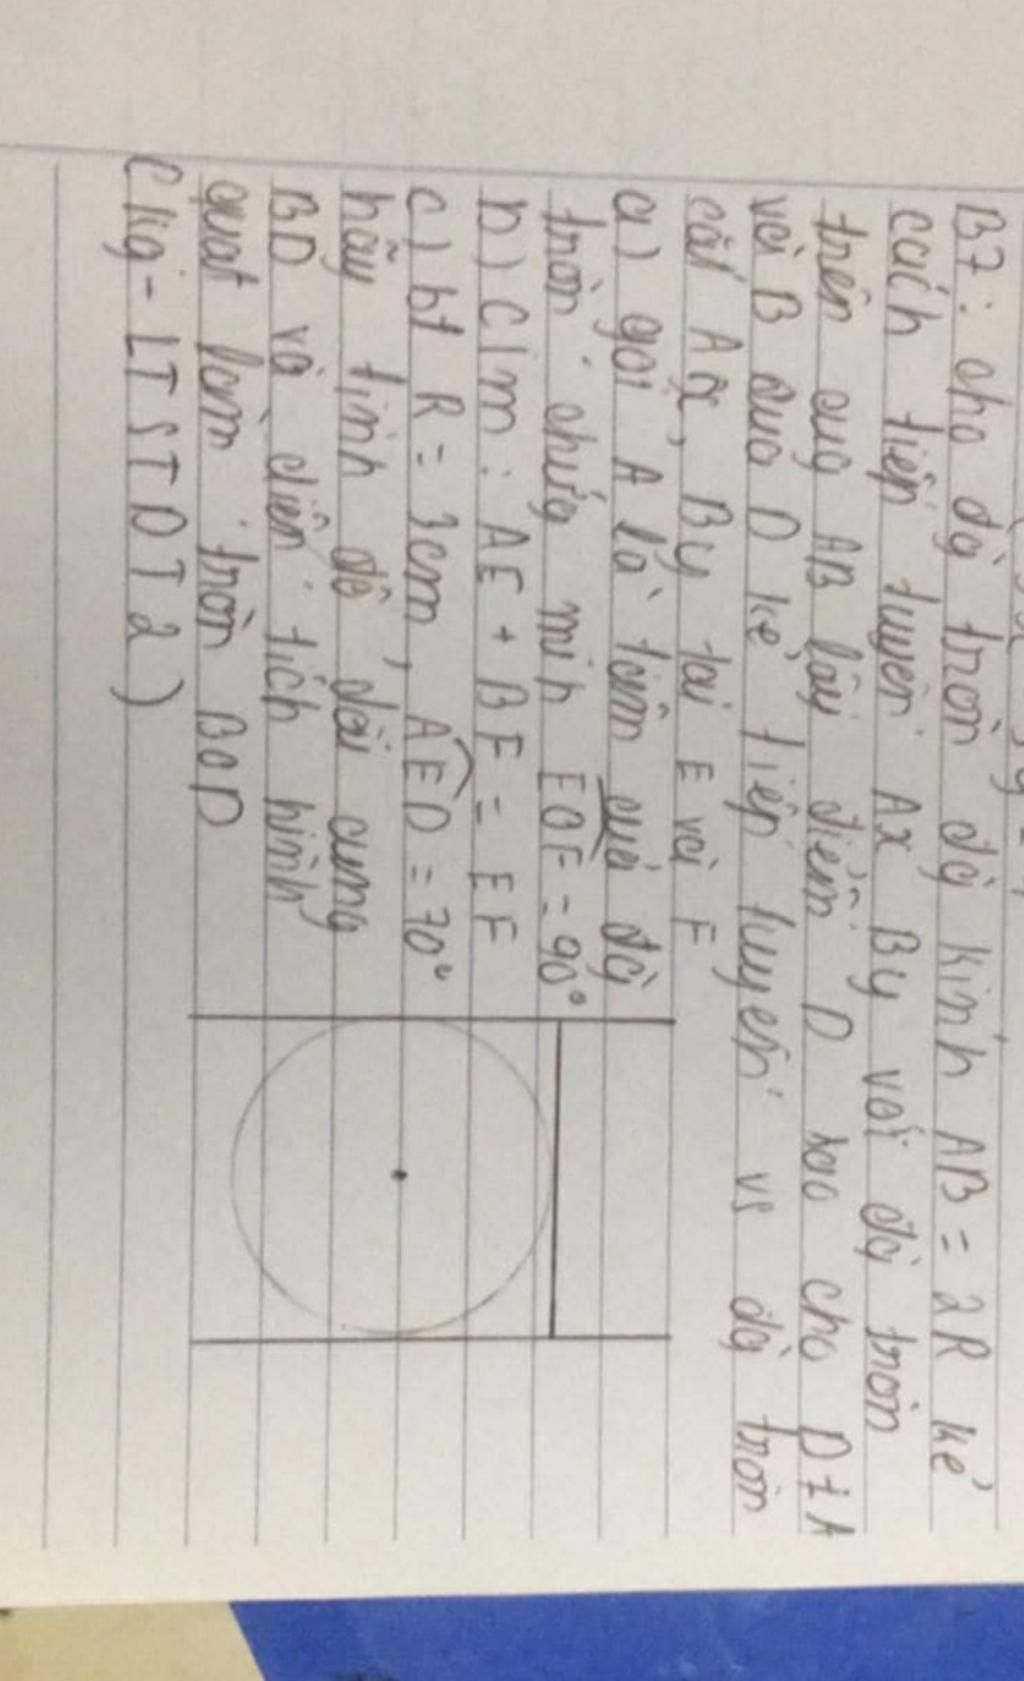 B7: cho đg tròn đg kinh AB = 2R kẻ
cách tiếp tuyến Ax By với đg tròn
trên cug AB lấy điểm D sao cho D ≠ A
với B qua D kẻ tiếp tuyến vs đg tròn
cắt Ax, By tại E và F
a) gọi A là tâm của đg
tròn chứg minh EOF = 90°
b) C/m: AE + BF = EF
c) bt R = 3cm, AED = 70°
hãy tính độ dài cung
BD và diện tích hình
quạt làm tròn BOD
(lig - LT STDT2)